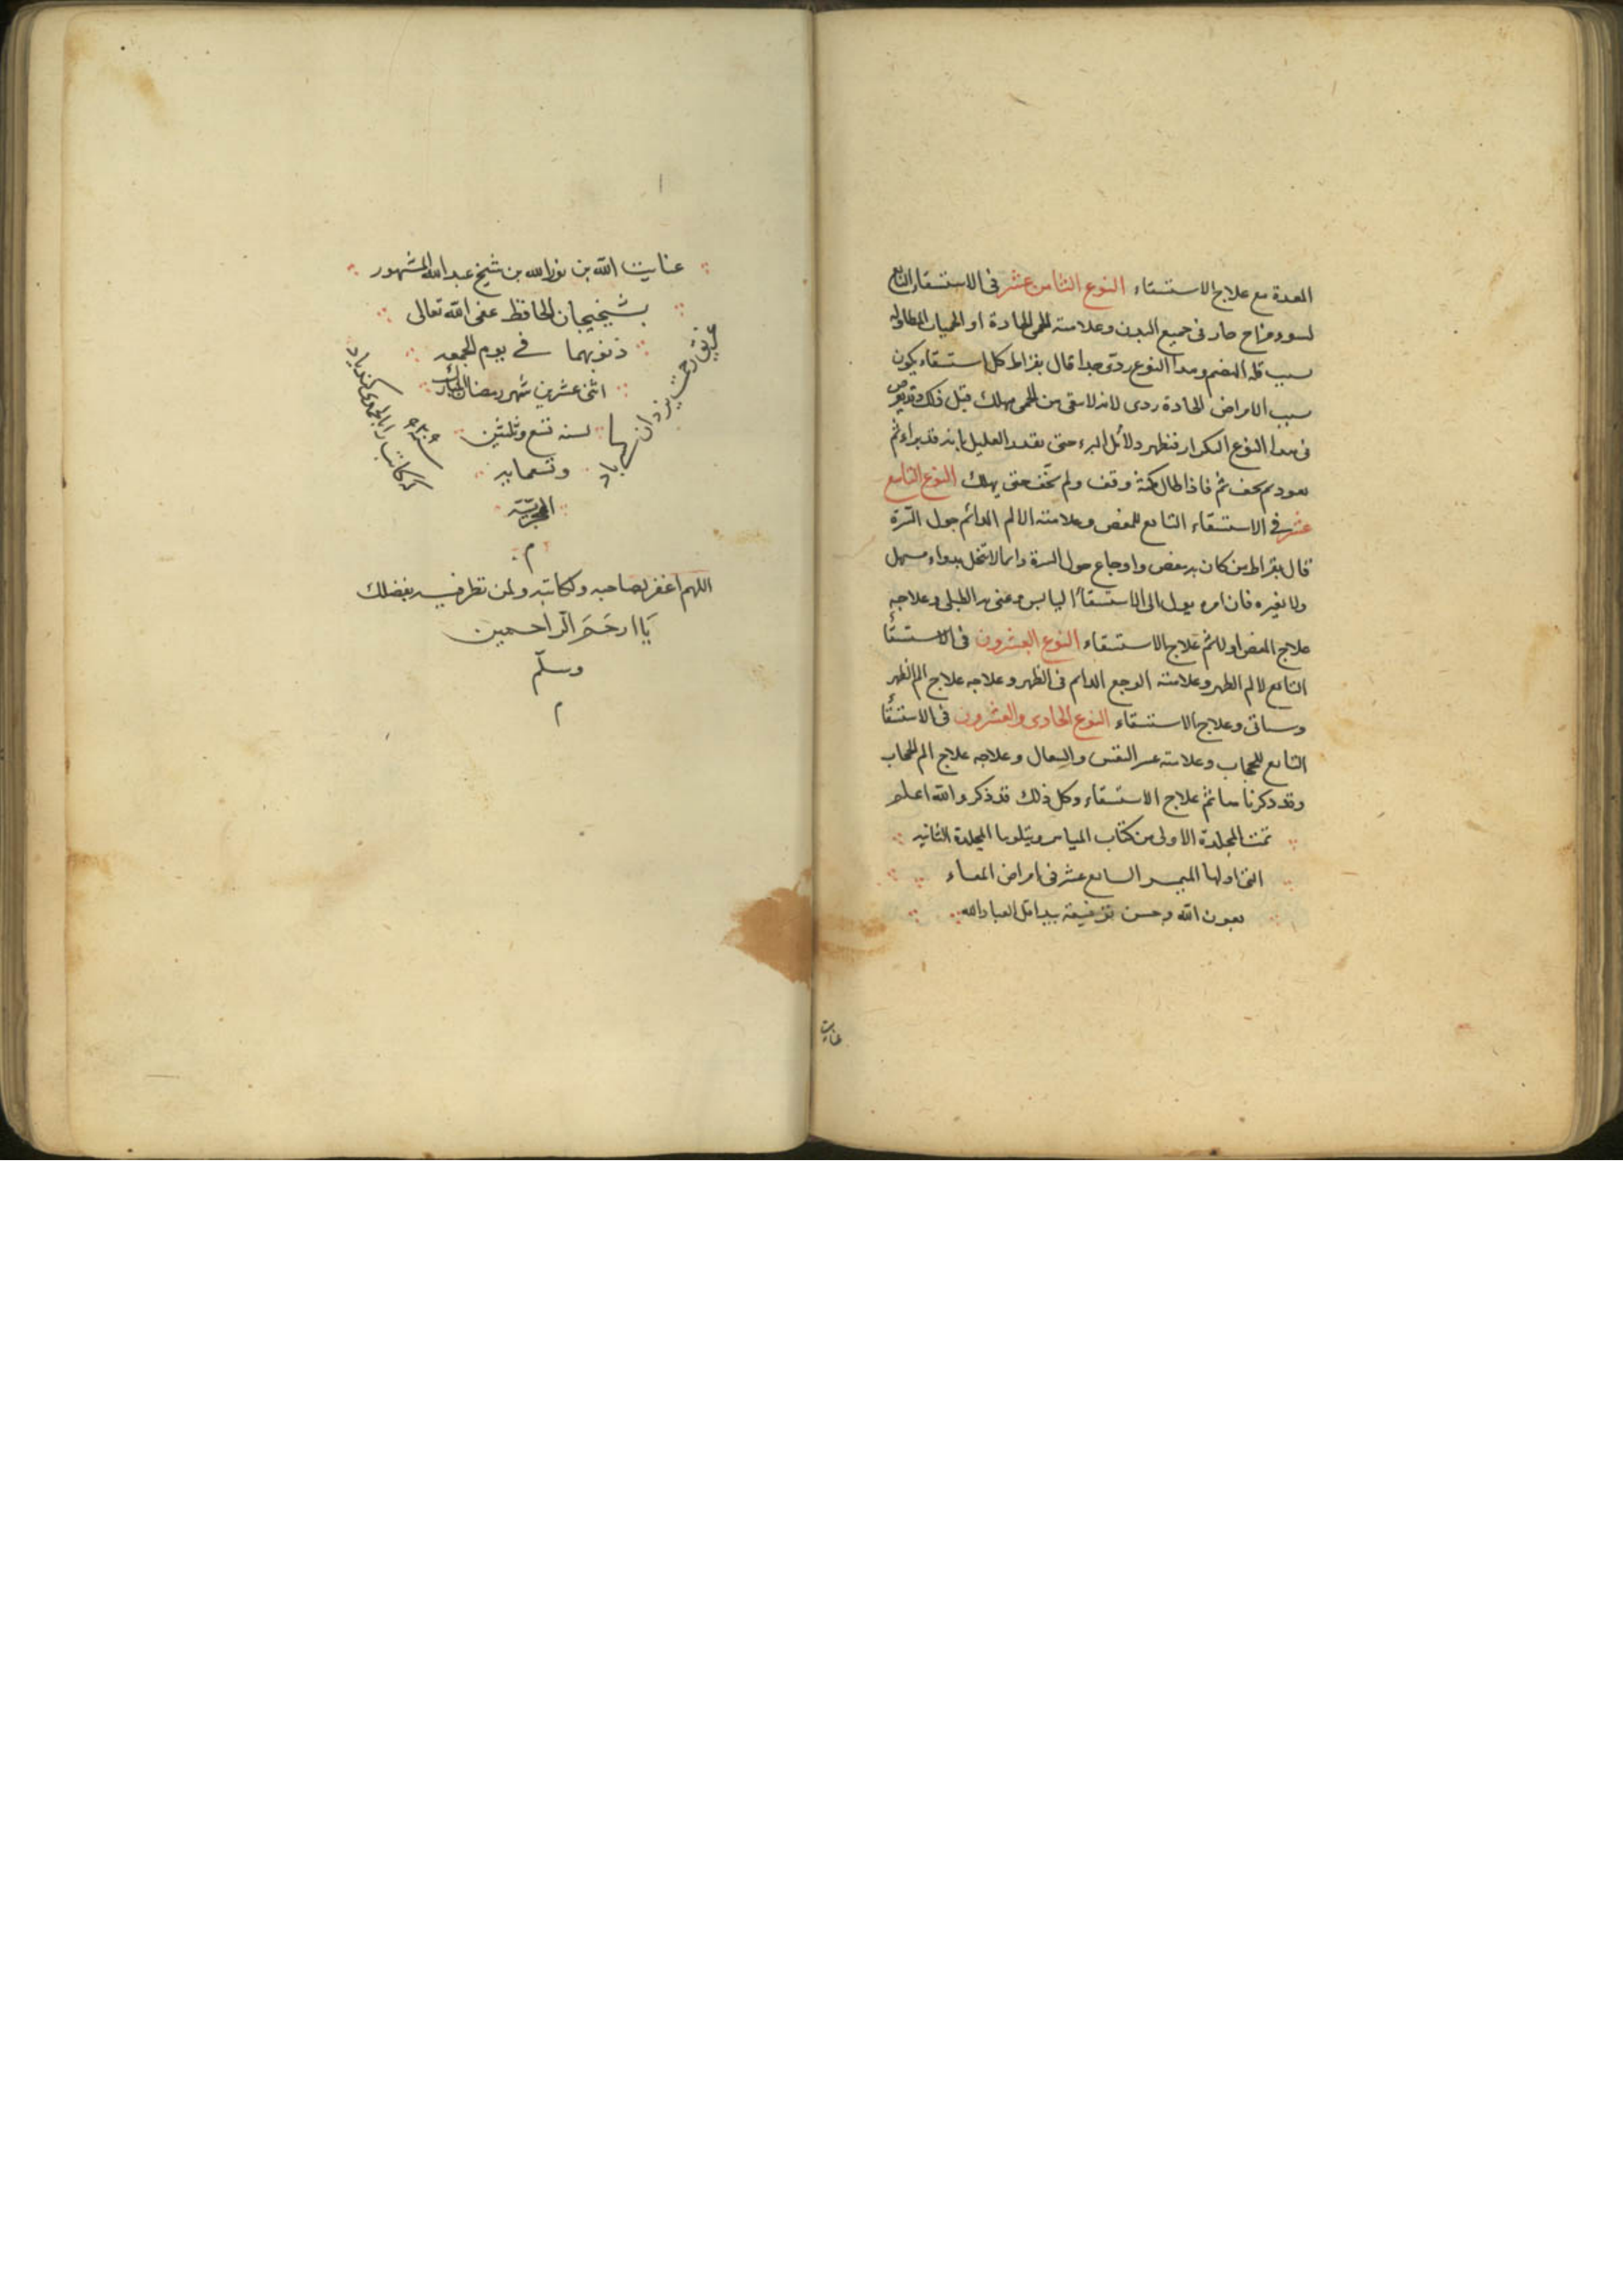 المعدة مع علاج الاستسقاء النوع الثامن عشر فى الاستسقاء التابع
لسوء مزاج حار فى جميع البدن وعلامته الحمى الحادة او الحميات المطاوله
بسبب قلة الهضم وهذا النوع ردى جدا قال بقراط كل استسقاء يكون
بسبب الامراض الحادة ردى لانه لا سقى من الحمى مهلك قبل ذلك وقد يعرض
فى هذا النوع التكرار فتظهر دلائل البرء حتى يعتقد العليل بانه قد براء ثم
يعود ثم يخف ثم فاذا طال مكثه وقف ولم يخف حتى يهلك النوع التاسع
عشر فى الاستسقاء التابع للمغص وعلامته الالم الدائم حول السّرة
قال بقراط من كان به مغص واوجاع حول السرة دايما لا تنحل بدواء مسهل
ولا بغيره فان امره يول الى الاستسقاء اليابس وعنى به الطبلى وعلاجه
علاج المغص اولا ثم علاج الاستسقاء النوع العشرون فى الاستسقاء
التابع لالم الظهر وعلامته الوجع الدايم فى الظهر وعلاجه علاج الم الظهر
وسياتى وعلاج الاستسقاء النوع الحادى والعشرون فى الاستسقاء
التابع للحجاب وعلامته عسر النفس والسعال وعلاجه علاج الم الحجاب
وقد ذكرنا ثم علاج الاستسقاء وكل ذلك قد ذكر والله اعلم
تمت المجلدة الاولى من كتاب الميامر ويتلوها المجلدة الثانيه
التى اولها الميمر السابع عشر فى امراض المعاء
بعون الله وحسن توفيقه بيد اقل العباد الله
عنايت
عنايت الله بن نور الله بن شيخ عبد الله المشهور
بشيخيجان الحافظ عفى الله تعالى
ذنوبهما فى يوم الجمعه
اثنى عشرين شهر رمضان المبارك
لسنه تسع وثلثين
وتسعمايه
الهجريّة
م
غريق رحمت يزدان كسى باد
كه كاتب را بالحمدى كند ياد
٩٣٩
اللهم اغفر لصاحبه ولكاتبه ولمن نظر فيه بفضلك
يَا ارحَمَ الراحمين
وسلّم
م